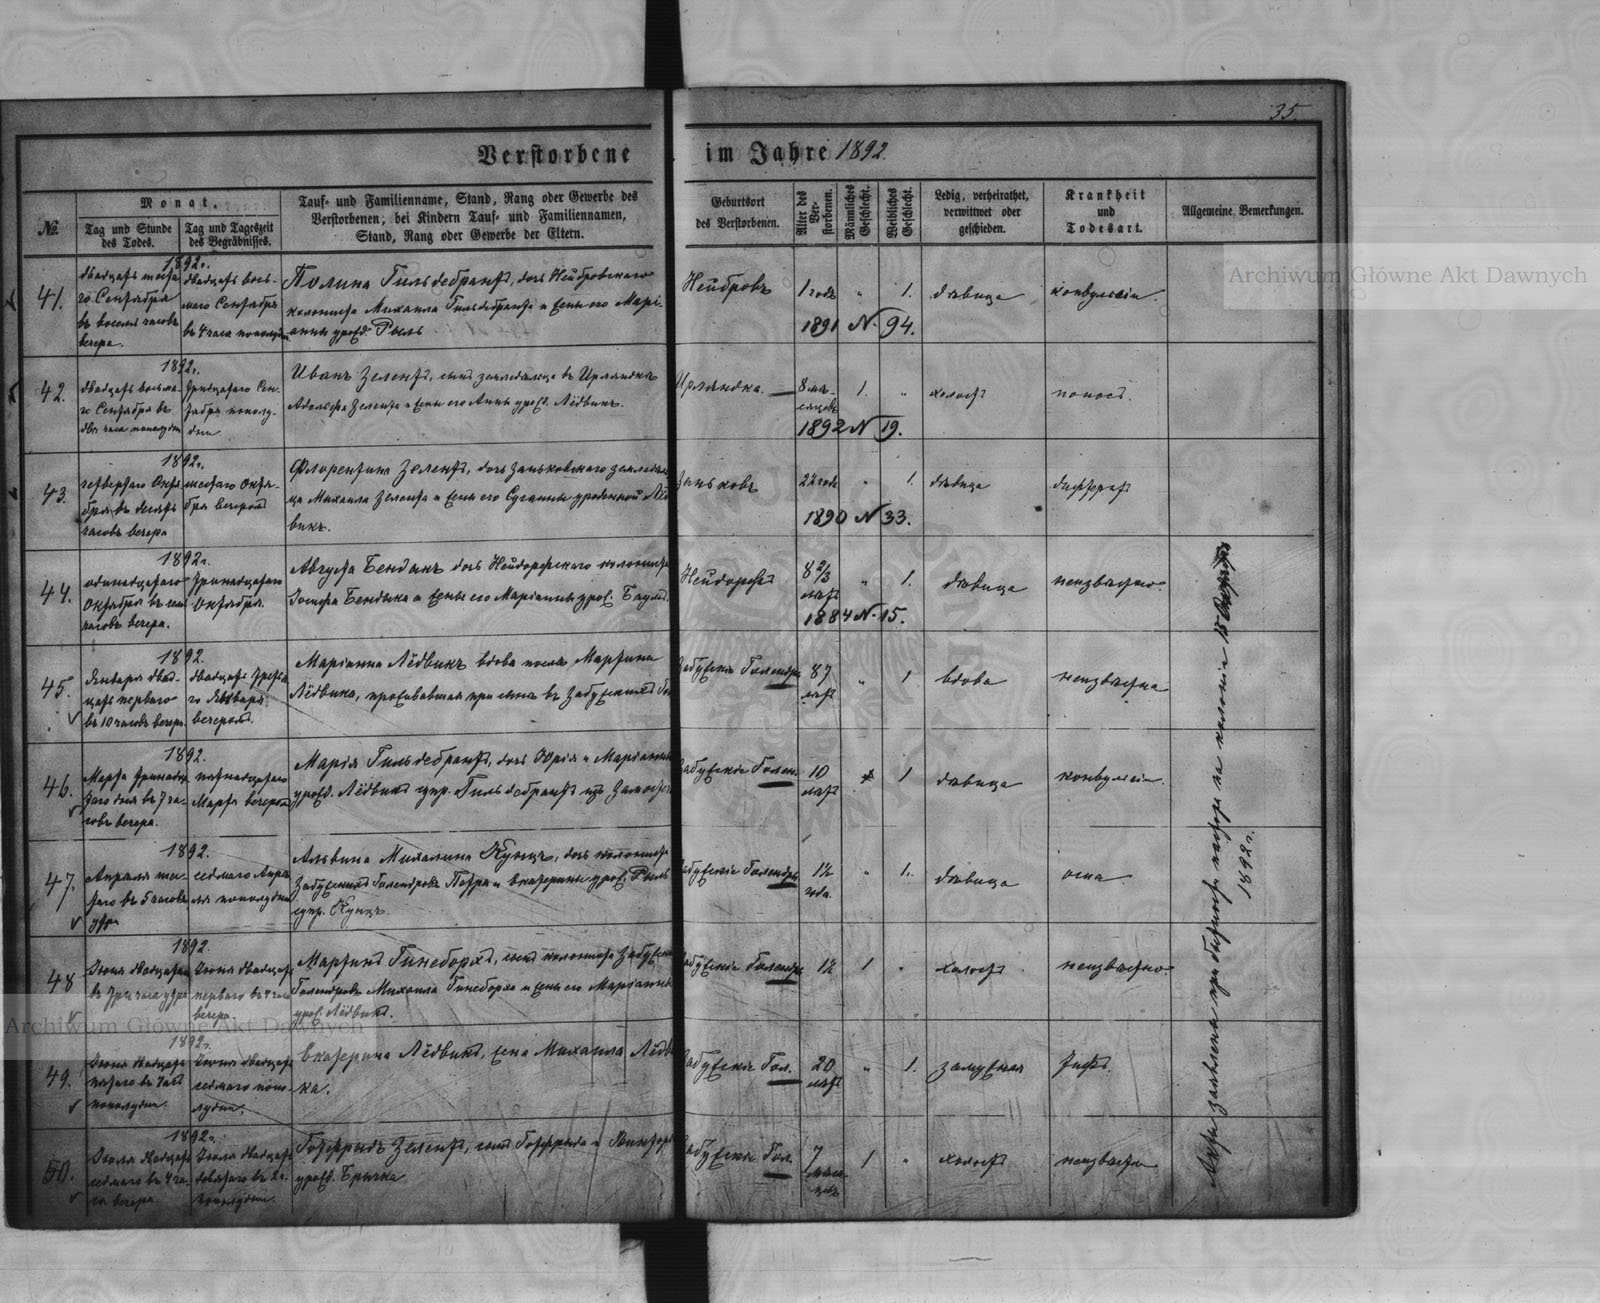 35
Verstorbene im Jahre 1892.
№
Monat.
Tag und Stunde des Todes.
Tag und Tageszeit des Begräbnisses.
Tauf- und Familienname, Stand, Rang oder Gewerbe des
Verstorbenen; bei Kindern Tauf- und Familiennamen,
Stand, Rang oder Gewerbe der Eltern.
Geburtsort
des Verstorbenen.
Alter des Verstorbenen.
Männliches Geschlecht.
Weibliches Geschlecht.
Ledig, verheirathet,
verwittwet oder
geschieden.
Krankheit
und
Todesart.
Allgemeine Bemerkungen.
41.
1892г.
двадцать шеста-
го Сентября
въ восемь часовъ
вечера.
двадцать вось-
маго Сентября
въ 4 часа пополудни
Полина Гильдебрантъ, дочь Нейбровскаго
колониста Михаила Гильдебранта и жены его Марі-
анны урожд. Рыль
Нейбровъ
1 годъ
"
1.
дѣвица
конвульсіи.
1891 N. 94.
42.
1892г.
двадцать восьма-
го Сентября въ
два часа пополудни
Тридцатаго Сен-
тября пополу-
дни
Иванъ Зелентъ, сынъ земледѣльца въ Ирляндкѣ
Адольфа Зелента и жены его Анны урожд. Лёдвикъ.
Ирляндка.
8 мѣ-
сяцевъ
1.
"
холостъ
поносъ.
1892 N 19.
43.
1892г.
четвертаго Октя-
бря въ десять
часовъ вечера
шестаго Октя-
бря вечеромъ
Флорентина Зелентъ, дочь Заньковскаго земледѣль-
ца Михаила Зелента и жены его Сузанны урожденной Лёд-
викъ.
Заньковъ
22 года
"
1.
дѣвица
дифтеритъ
1890 N 33.
44.
1892г.
одинадцатаго
Октября въ семь
часовъ вечера.
Тринадцатаго
Октября.
Августа Бендыкъ дочь Нейдорфскаго колониста
Іосифа Бендыка и жены его Маріанны урож. Баумъ.
Нейдорфъ
8 2/3
лѣтъ
"
1.
дѣвица
неизвѣстно.
1884 N. 15.
45.
1892.
Января двад-
цать перваго
въ 10 часовъ вечера
двадцать третья-
го Января
вечеромъ.
Маріанна Лёдвикъ вдова послѣ Мартина
Лёдвика, проживавшая при сынѣ въ Забужскихъ Го
Забужскія Голендры
87
лѣтъ
"
1
вдова
неизвѣстна
46.
1892.
Марта тринадца-
таго дня въ 7 ча-
совъ вечера.
пятнадцатаго
Марта вечеромъ
Марія Гильдебрантъ, дочь Юрія и Маріанны
урожд. Лёдвикъ супр. Гильдебрантъ изъ Замостеч
Забужскія Голен.
10
лѣтъ
1
дѣвица
конвульсіи.
47.
1892.
Апрѣля ше-
стаго въ 5 часовъ
утра
седмаго Апрѣ-
ля пополудни
Альвина Михалина Кунцъ, дочь колониста
Забужскихъ Голендровъ Петра и Екатерины урож. Рыль
супр. Кунцъ.
Забужскія Голендры
1½
года.
"
1.
дѣвица
оспа.
48
1892.
Іюня двадцатаго
въ три часа утра
Іюня двадцать
перваго въ 4 часа
вечера.
Мартинъ Гинеборхъ, сынъ колониста Забужск
Голендровъ Михаила Гинеборха и жены его Маріанны
урож. Лёдвикъ.
Забужскія Голендры
1½
1
"
холостъ
неизвѣстно.
49.
1892г.
Іюня двадцать
пятаго въ 7 час
пополудни.
Іюня двадцать
седмаго попо-
лудни.
Екатерина Лёдвикъ, жена Михаила Лёдви
ка.
Забужскія Гол.
20
лѣтъ
"
1.
замужняя
Тифъ.
50.
1892г.
Іюля двадцать
седмаго въ 4 ча-
са вечера.
Іюля двадцать
девятаго въ 2 ч.
пополудни.
Готфридъ Зелентъ, сынъ Готфрида и
урожд. Брычка
Забужскія Гол.
7
мѣся-
цевъ
1
"
холостъ
неизвѣстна
1892г.
Archiwum Główne Akt Dawnych
Archiwum Główne Akt Dawnych